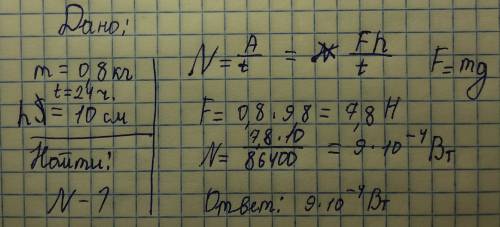 Дано:
m = 0,8 кг
t = 24 ч.
h = 10 см
Найти:
N - ?
N = A/t = Fh/t
F = mg
F = 0,8 · 9,8 = 7,8 Н
N = 7,8 · 10/86400 = 9 · 10⁻⁴ Вт
Ответ: 9 · 10⁻⁴ Вт